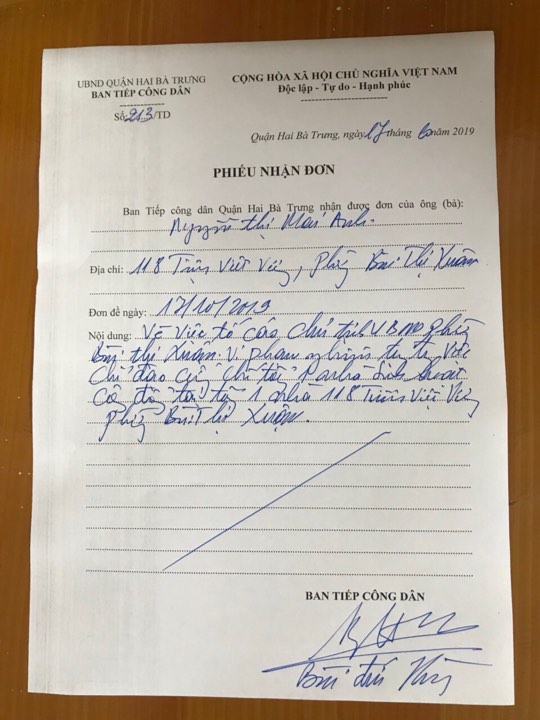 UBND QUẬN HAI BÀ TRƯNG
BAN TIẾP CÔNG DÂN
Số: 213/TD
CỘNG HÒA XÃ HỘI CHỦ NGHĨA VIỆT NAM
Độc lập - Tự do - Hạnh phúc
Quận Hai Bà Trưng, ngày 17 tháng 10 năm 2019
PHIẾU NHẬN ĐƠN
Ban Tiếp công dân Quận Hai Bà Trưng nhận được đơn của ông (bà):
Nguyễn Thị Mai Anh.
Địa chỉ: 118 Triệu Việt Vương, Phường Bùi Thị Xuân
Đơn đề ngày: 17/10/2019
Nội dung: Về việc tố cáo chủ tịch UBND phường
Bùi Thị Xuân. Vi phạm nghiêm trọng việc
chỉ đạo
tầng 1 nhà 118 Triệu Việt Vương
phường Bùi Thị Xuân.
BAN TIẾP CÔNG DÂN
Bùi